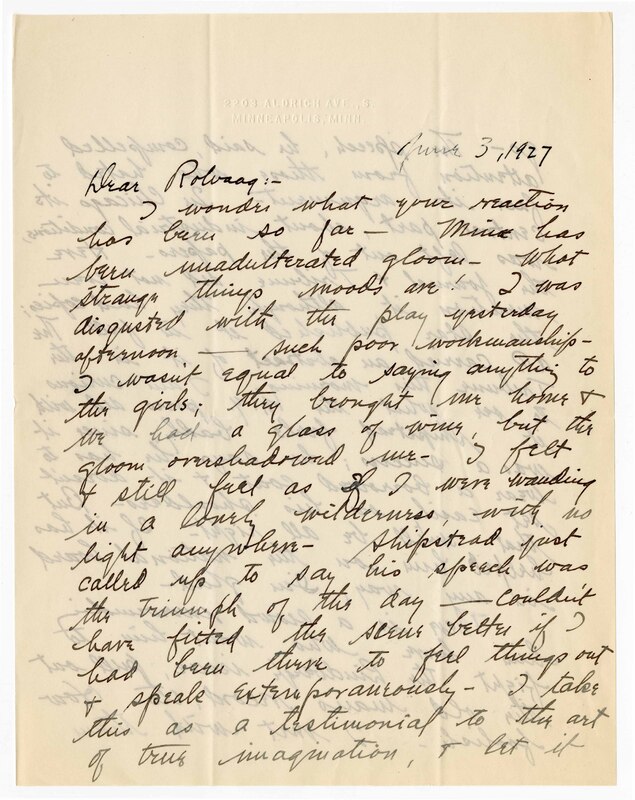 2203 ALDRICH AVE., S.
MINNEAPOLIS, MINN.
June 3, 1927
Dear Rolvaag:-
I wonder what your reaction
has been so far — Mine has
been unadulterated gloom — What
strange things moods are! I was
disgusted with the play yesterday
afternoon — such poor workmanship —
I wasn't equal to saying anything to
the girls; they brought me home &
we had a glass of wine, but the
gloom overshadowed me — I felt
& still feel as if I were wanding
in a lonely wilderness, with no
light anywhere — Shipstead just
called up to say his speech was
the triumph of the day — couldn't
have fitted the scene better if I
had been there to feel things out
& speak extemporaneously — I take
this as a testimonial to the art
of true imagination, & let it